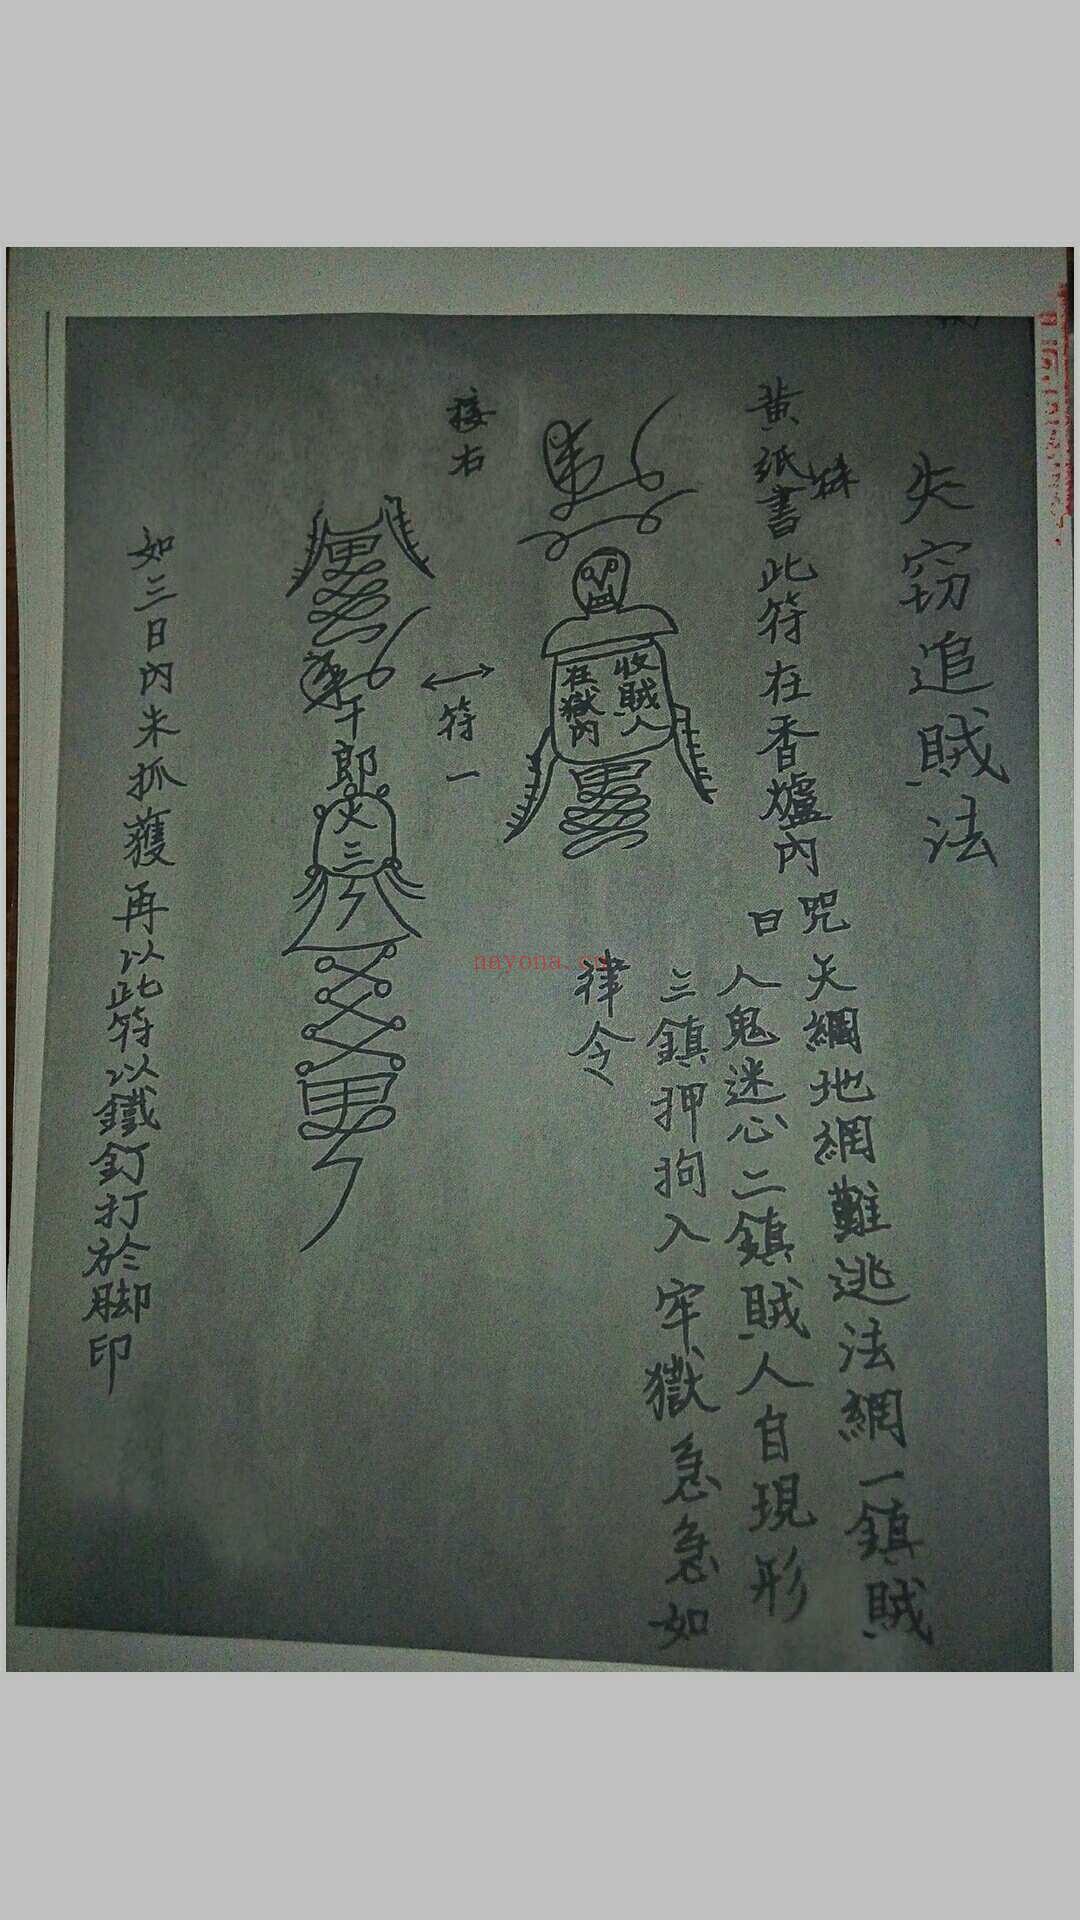 失窃追賊法
黄紙硃書此符在香爐內
咒曰
天網地網難逃法網一鎮賊
人鬼迷心二鎮賊人自現形
三鎮押拘入牢獄急急如
律令
收賊人
在獄內
符一
接右
千郎
火
三
如三日內未抓獲再以此符以鐵釘打於脚印
nayona.cn